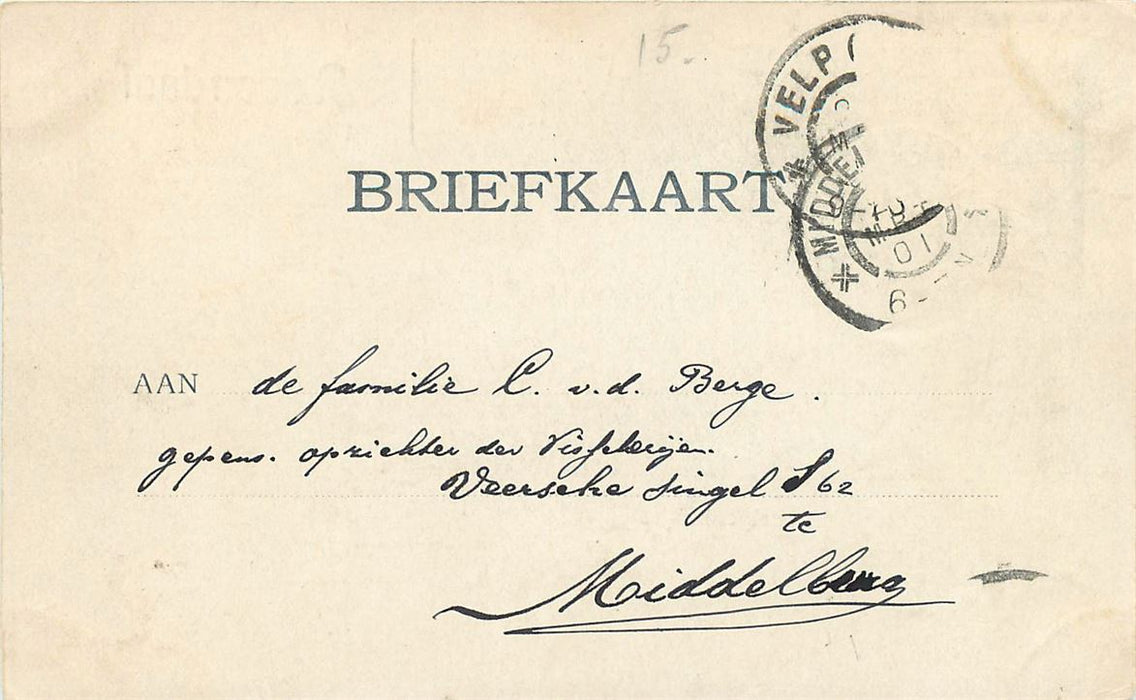 15.
VELP
MIDDE
MRT
01
6-
N
BRIEFKAART
AAN de familie C. v.d. Berge.
gepens. opzichter der Visscherijen.
Veersche singel S 62
te
Middelburg